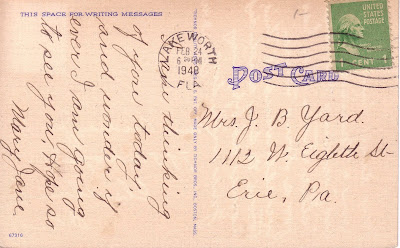 THIS SPACE FOR WRITING MESSAGES
thinking
of you today
and wonder if
ever I am going
to see you. Hope so
Mary Jane.
67316
BROS., INC., BOSTON, MASS.
LAKE WORTH
FEB 24
PM
1948
FLA
UNITED STATES
POSTAGE
1 CENT 1
POST CARD
Mrs. J. B. Yard.
1112 W. Eighth St
Erie, Pa.